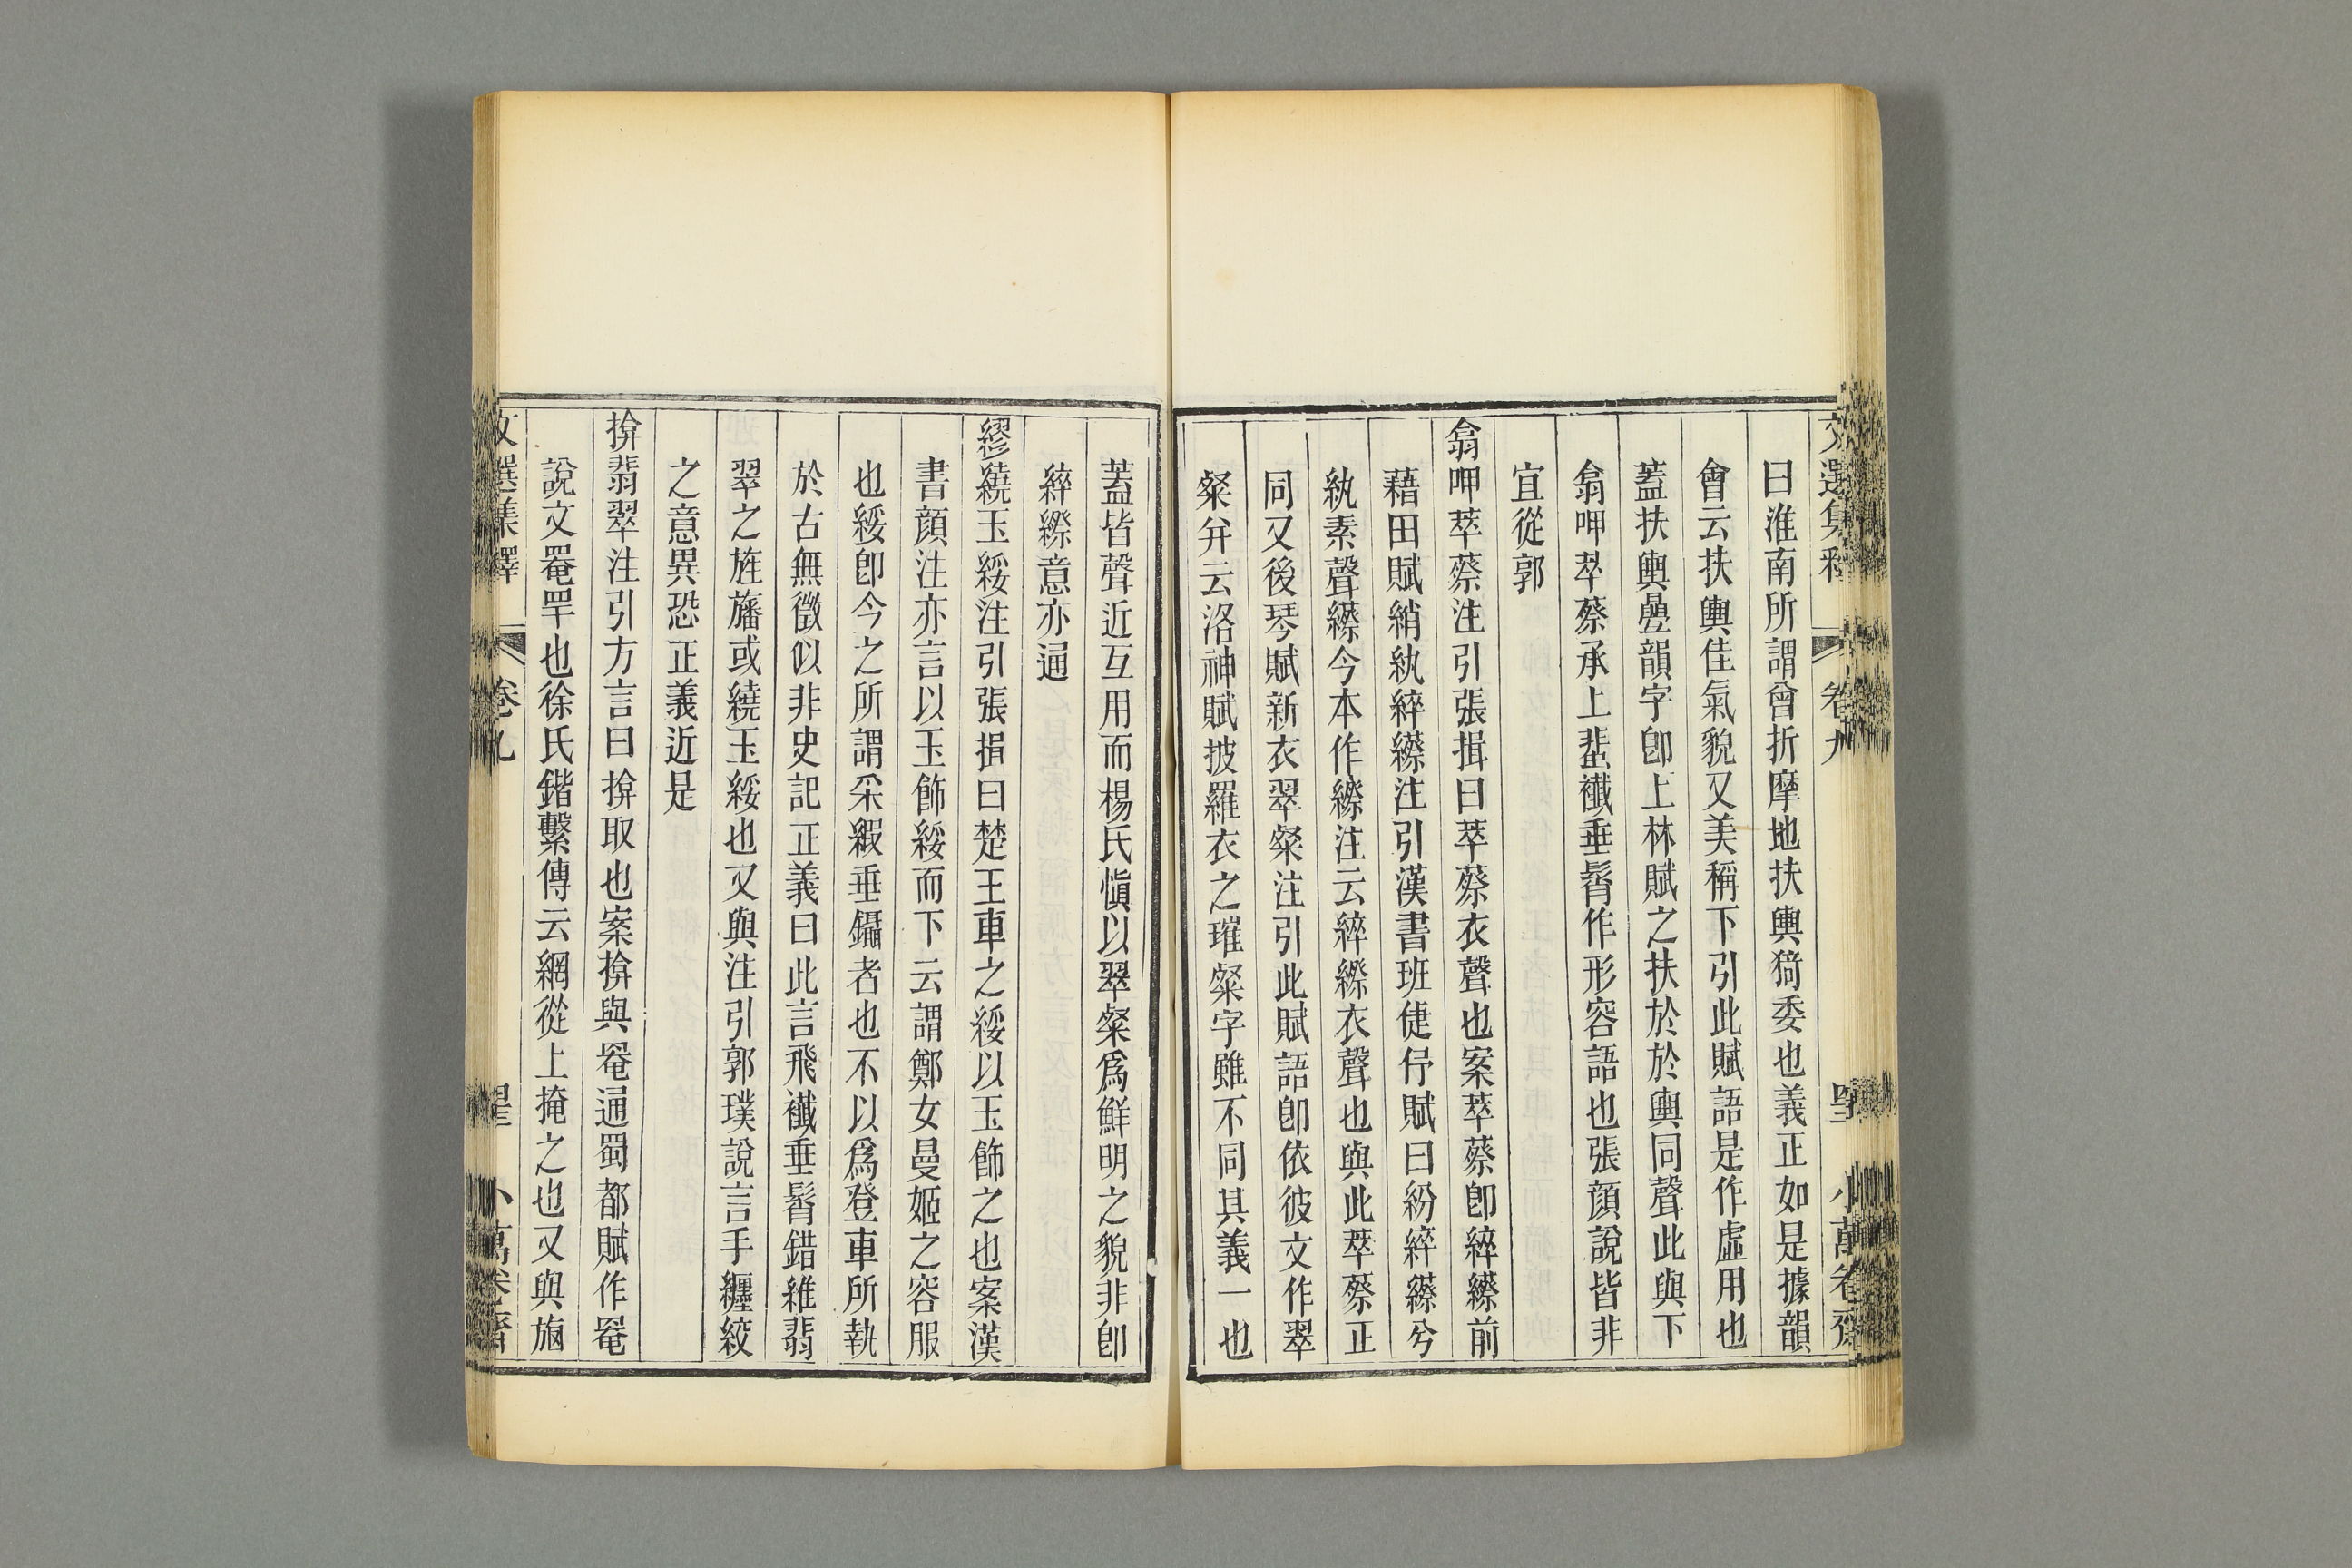 文選集釋 卷九 小萬卷齋
曰淮南所謂曾折摩地扶輿猗委也義正如是據韻
會云扶輿佳氣貌又美稱下引此賦語是作虛用也
蓋扶輿疊韻字卽上林賦之扶於於輿同聲此與下
翕呷萃蔡承上蜚襳垂髾作形容語也張顏說皆非
宜從郭
翕呷萃蔡注引張揖曰萃蔡衣聲也案萃蔡卽綷縩前
藉田賦綃紈綷䌨注引漢書班倢伃賦曰紛綷䌨兮
紈素聲䌨今本作縩注云綷縩衣聲也與此萃蔡正
同又後琴賦新衣翠粲注引此賦語卽依彼文作翠
粲弁云洛神賦披羅衣之璀粲字雖不同其義一也
蓋皆聲近互用而楊氏愼以翠粲爲鮮明之貌非卽
綷縩意亦通
繆繞玉綏注引張揖曰楚王車之綏以玉飾之也案漢
書顏注亦言以玉飾綏而下云謂鄭女曼姬之容服
也綏卽今之所謂采緵垂鑷者也不以爲登車所執
於古無徵似非史記正義曰此言飛襳垂髾錯雜翡
翠之旌旛或繞玉綏也又與注引郭璞說言手纏絞
之意異恐正義近是
揜翡翠注引方言曰揜取也案揜與罨通蜀都賦作罨
說文罨罕也徐氏鍇繫傳云網從上掩之也又與旓
文選集釋 卷九 小萬卷齋